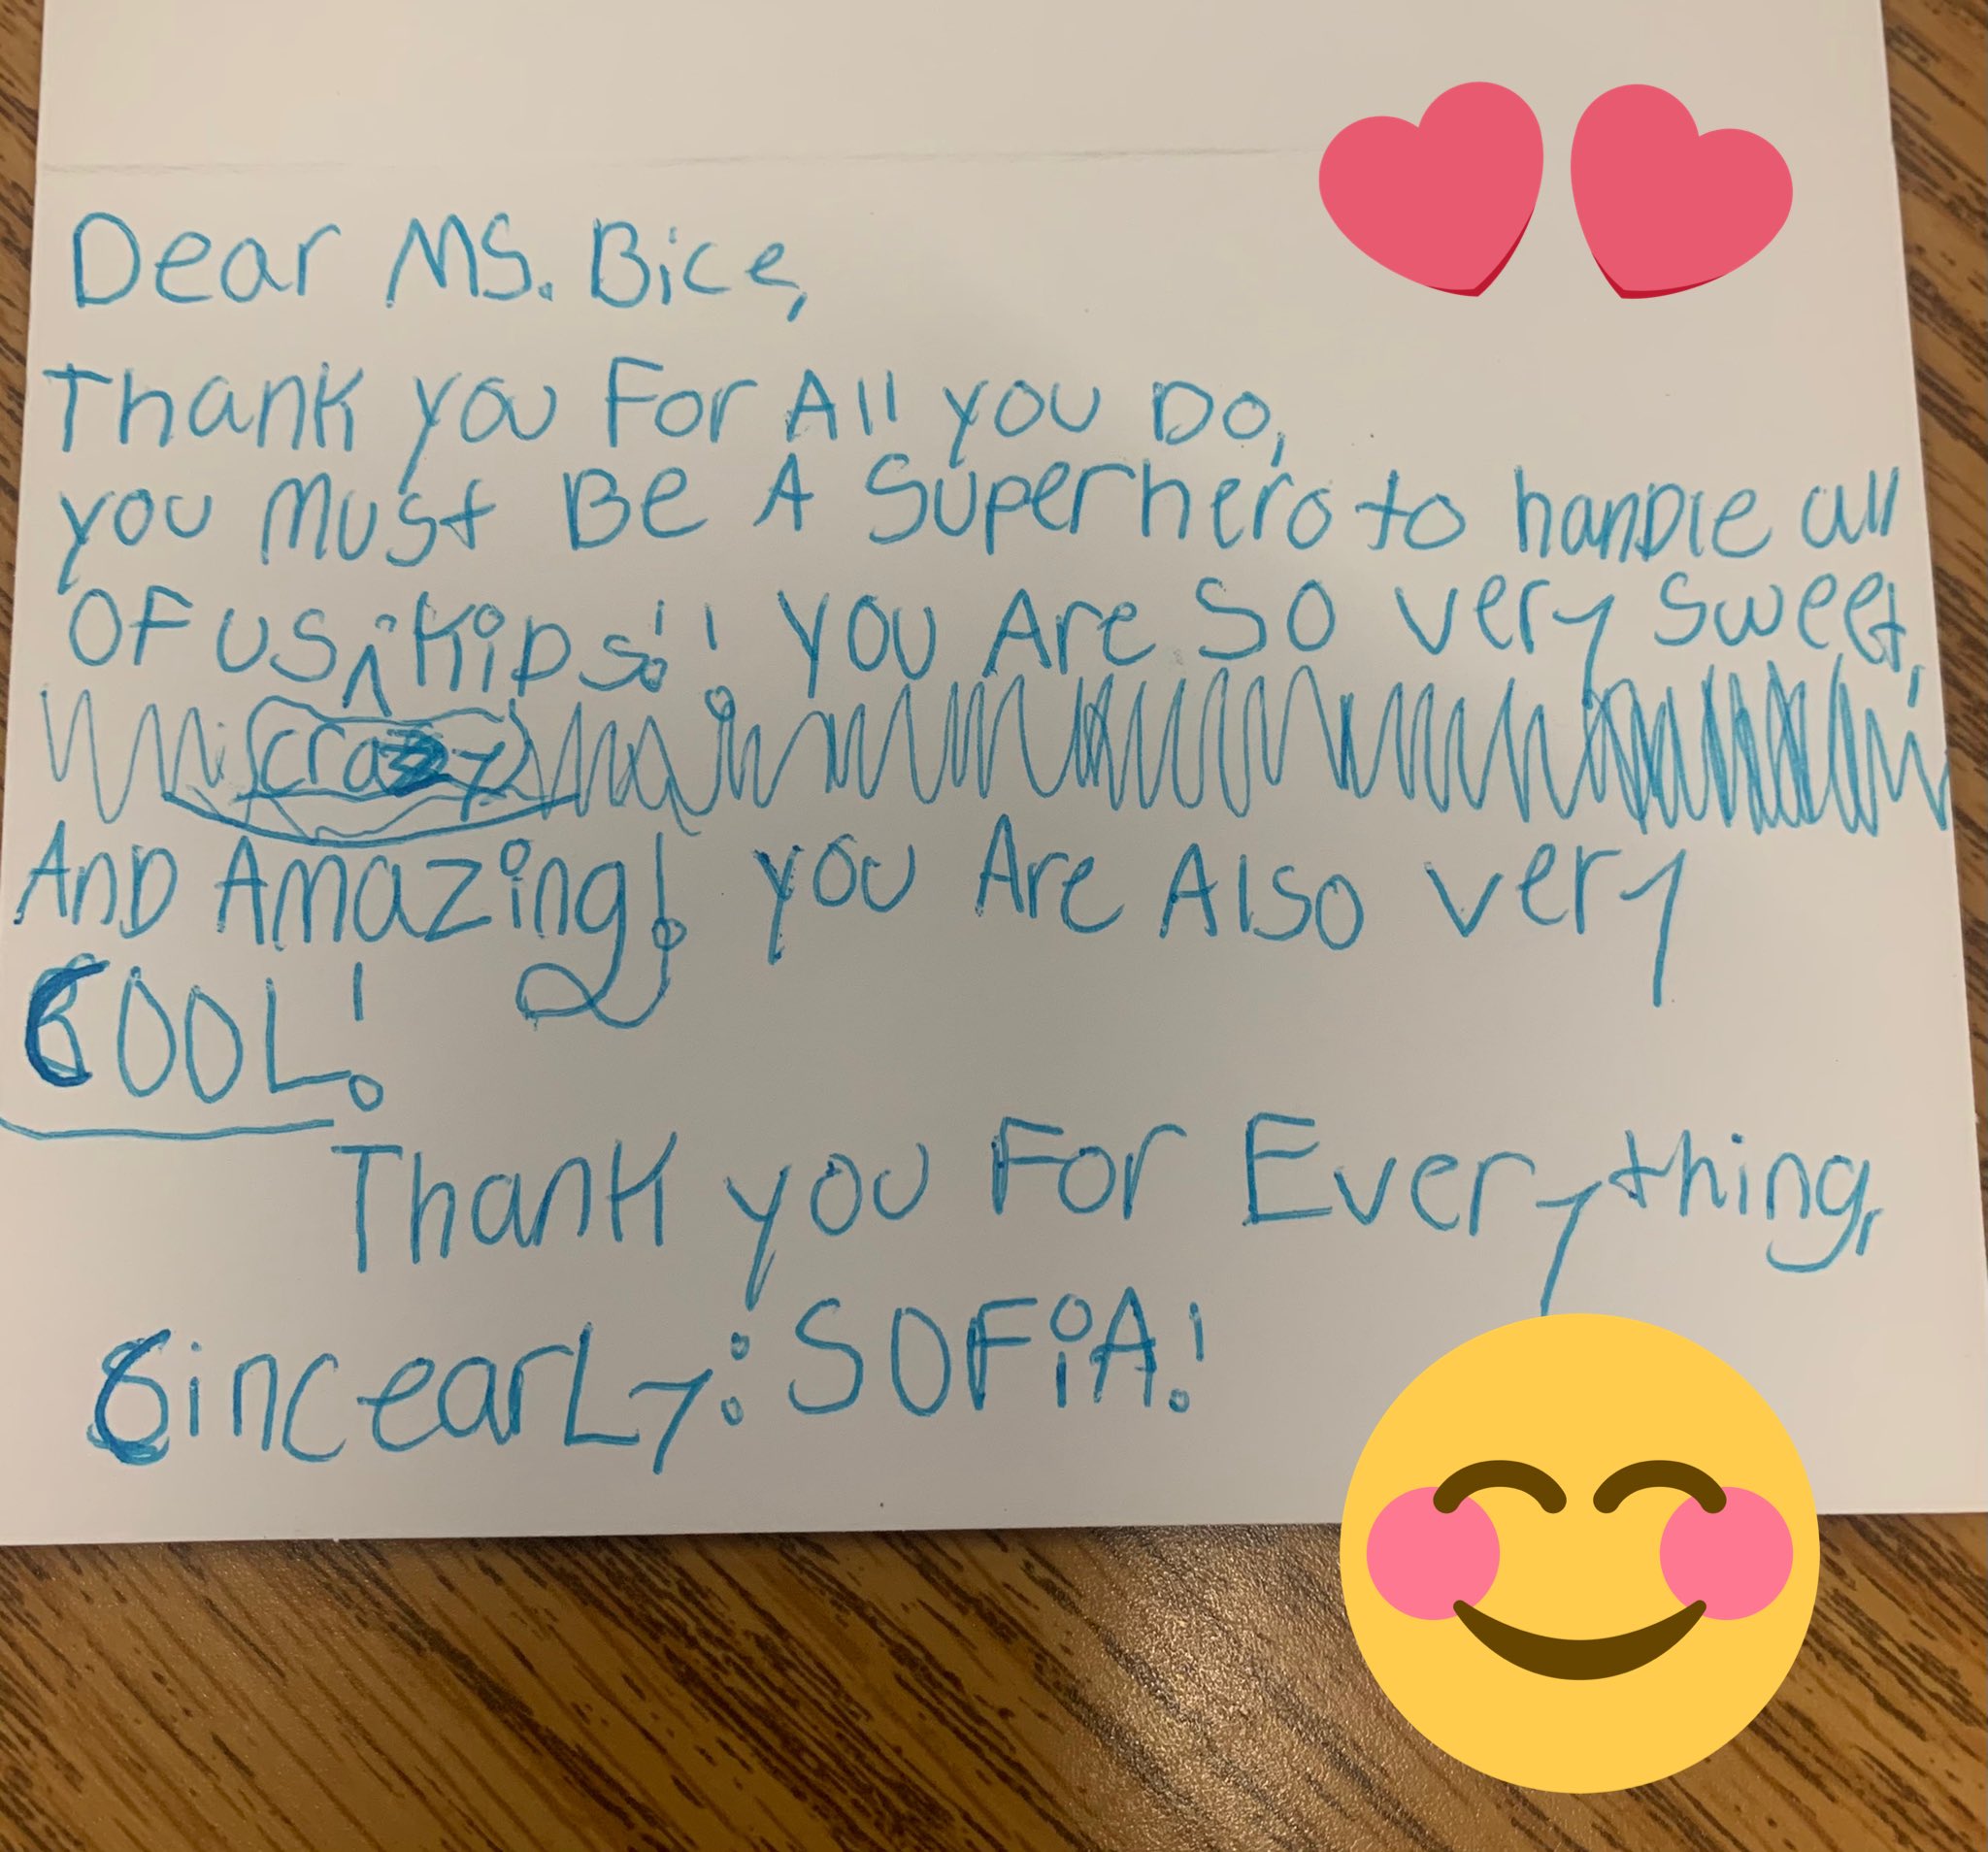 Dear MS. Bice,
Thank you For All you Do,
you Must Be A Superhero to handle all
OF US, ^ KiDs! ! you Are So very Sweet,
crazy
AnD Amazing! you Are Also very
COOL!
Thank you For Everything,
SincearLy: SOFiA!